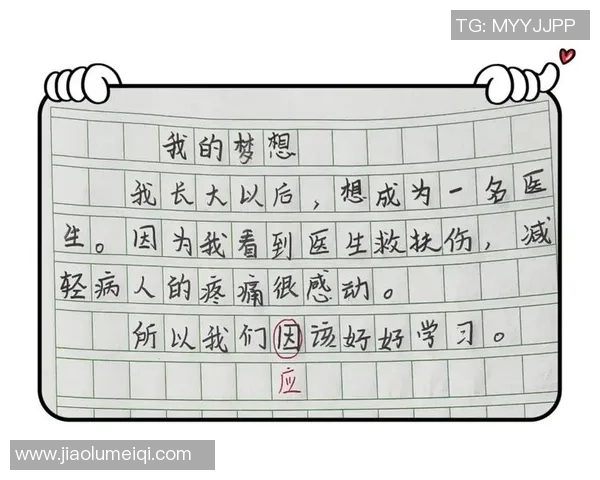 TG: MYYJJPP
我的梦想
我长大以后，想成为一名医
生。因为我看到医生救扶伤，减
轻病人的疼痛很感动。
所以我们因该好好学习。
应
www.jiaolumeiqi.com